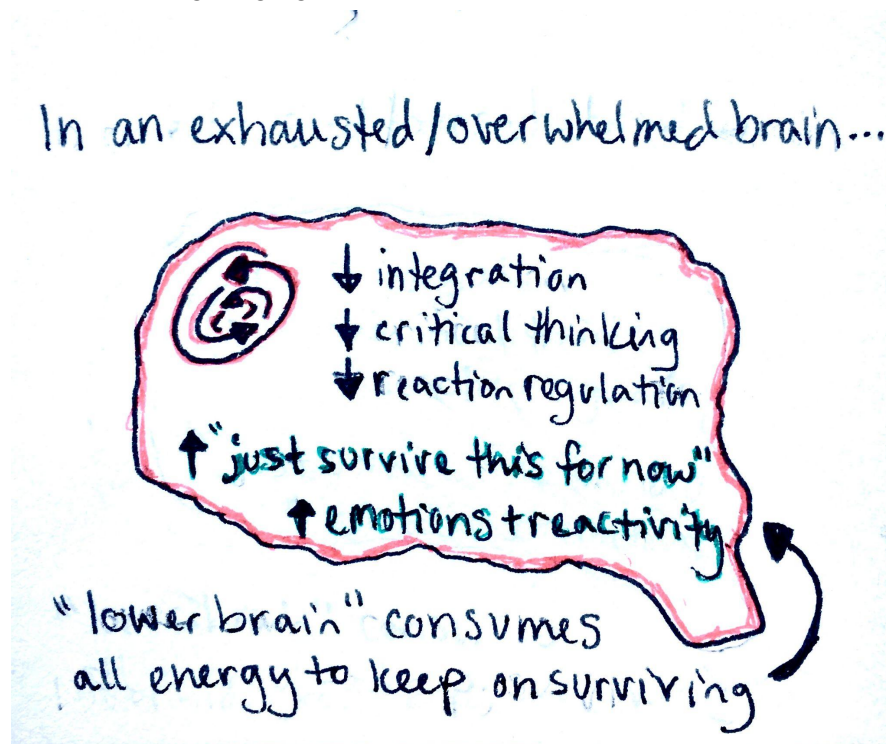 In an exhausted/overwhelmed brain...
↓ integration
↓ critical thinking
↓ reaction regulation
↑ "just survive this for now"
↑ emotions + reactivity
"lower brain" consumes
all energy to keep on surviving